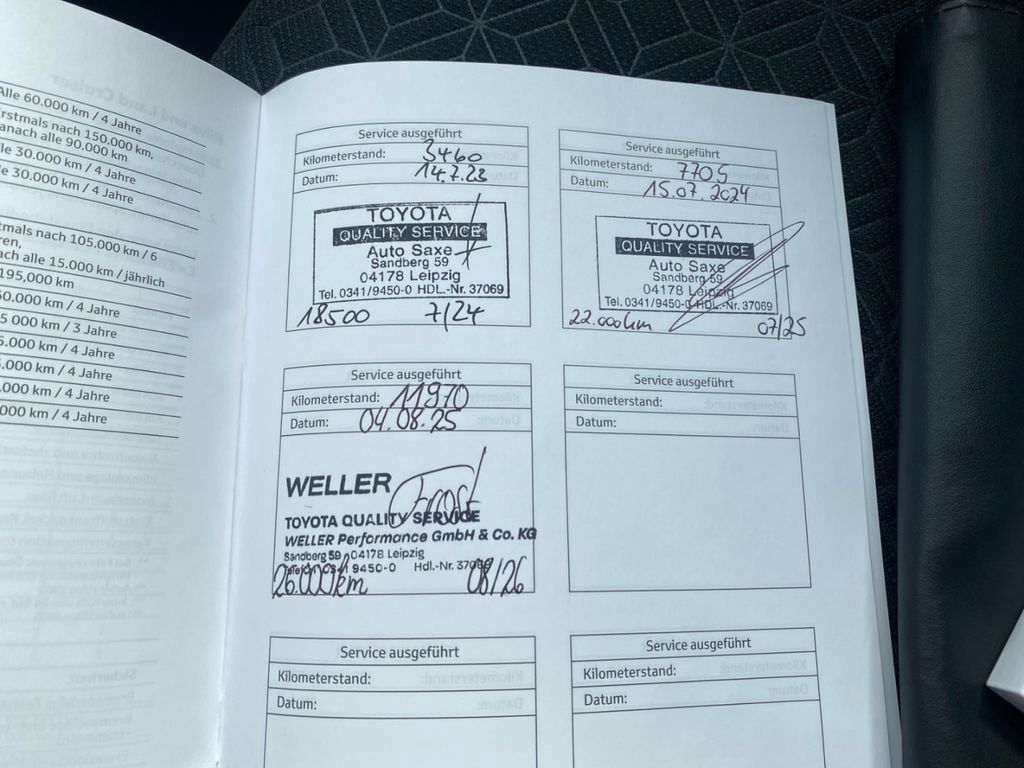 Alle 60.000 km / 4 Jahre
rstmals nach 150.000 km,
anach alle 90.000 km
le 30.000 km / 4 Jahre
le 30.000 km / 4 Jahre
tmals nach 105.000 km / 6
ren,
ach alle 15.000 km / jährlich
195,000 km
0.000 km / 4 Jahre
5 000 km / 3 Jahre
5.000 km / 4 Jahre
.000 km / 4 Jahre
.000 km / 4 Jahre
000 km / 4 Jahre
Service ausgeführt
Kilometerstand: 3460
Datum: 14.7.23
TOYOTA
QUALITY SERVICE
Auto Saxe
Sandberg 59
04178 Leipzig
Tel. 0341/9450-0 HDL.-Nr. 37069
18500 7/24
Service ausgeführt
Kilometerstand: 7705
Datum: 15.07.2024
TOYOTA
QUALITY SERVICE
Auto Saxe
Sandberg 59
04178 Leipzig
Tel. 0341/9450-0 HDL.-Nr. 37069
22.000km 07/25
Service ausgeführt
Kilometerstand: 11970
Datum: 04.08.25
WELLER
TOYOTA QUALITY SERVICE
WELLER Performance GmbH & Co. KG
Sandberg 59 04178 Leipzig
Telefon 0341 9450-0 Hdl.-Nr. 37069
26.000km 08/26
Service ausgeführt
Kilometerstand:
Datum:
Service ausgeführt
Kilometerstand:
Datum:
Service ausgeführt
Kilometerstand:
Datum: